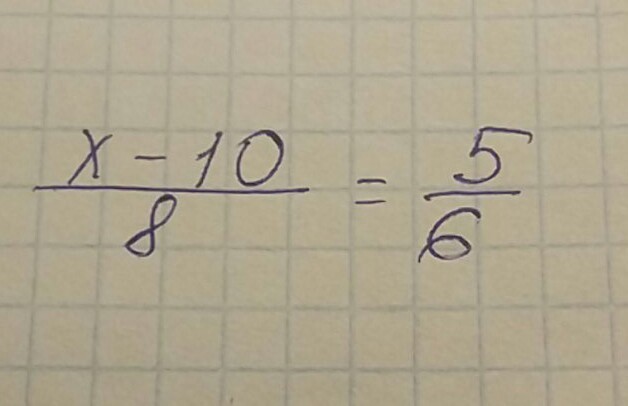 x - 10 / 8 = 5 / 6